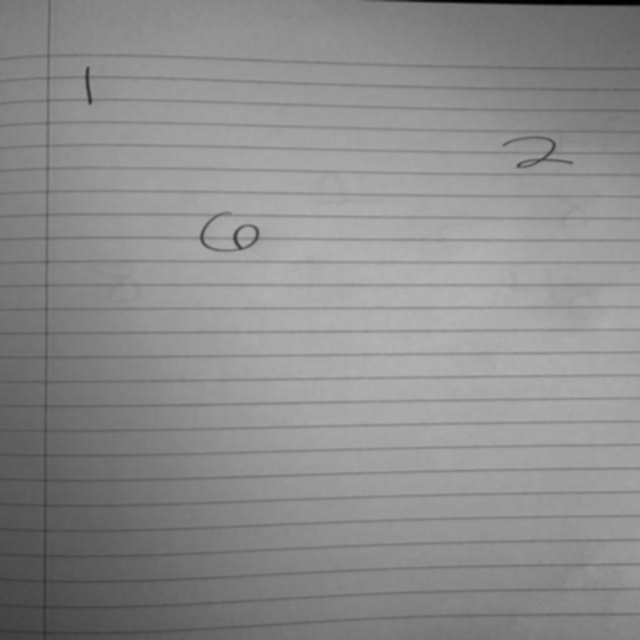 1
2
6